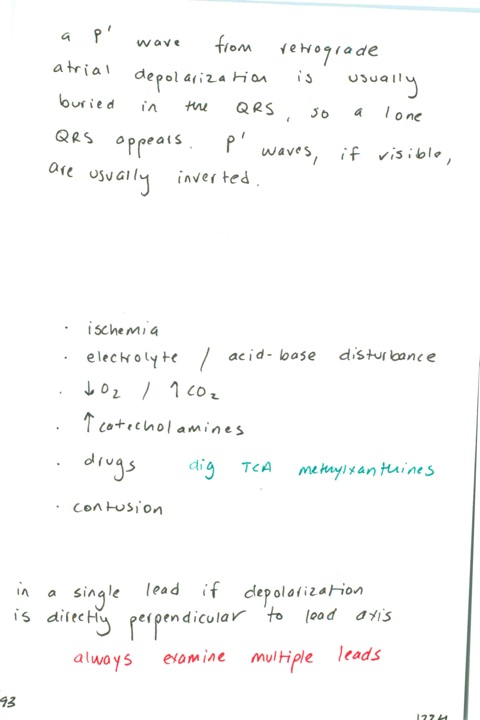 a P' wave from retrograde
atrial depolarization is usually
buried in the QRS, so a lone
QRS appears. P' waves, if visible,
are usually inverted.
· ischemia
· electrolyte / acid-base disturbance
· ↓O₂ / ↑CO₂
· ↑catecholamines
· drugs dig TCA methylxanthines
· contusion
in a single lead if depolarization
is directly perpendicular to lead axis
always examine multiple leads
93